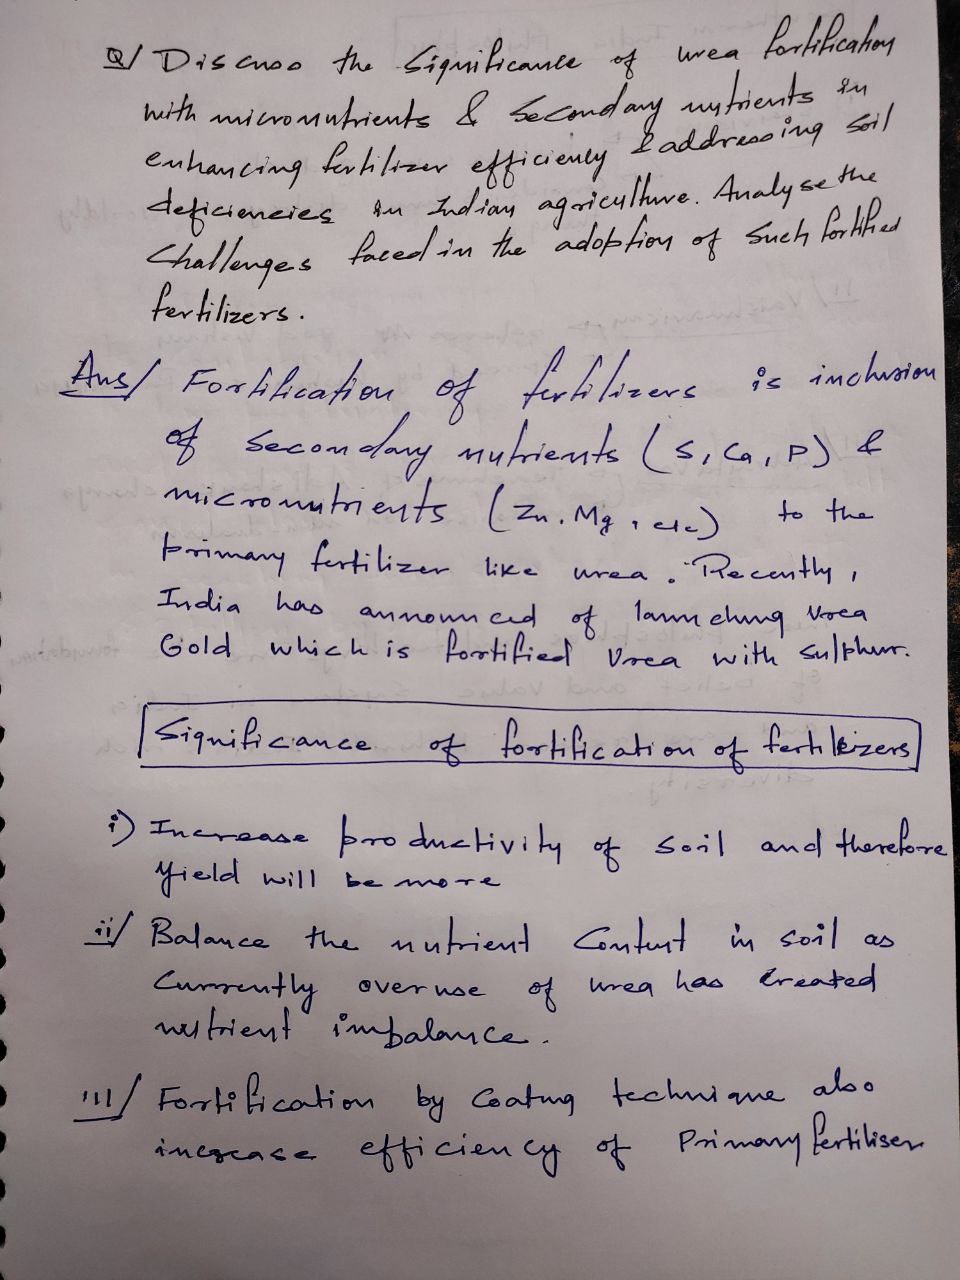 Q/ Discuss the significance of urea fortification
with micronutrients & secondary nutrients in
enhancing fertilizer efficiency & addressing soil
deficiencies in Indian agriculture. Analyse the
challenges faced in the adoption of such fortified
fertilizers.
Ans/ Fortification of fertilizers is inclusion
of secondary nutrients (S, Ca, P) &
micronutrients (Zn, Mg, etc) to the
primary fertilizer like urea. Recently,
India has announced of launching Urea
Gold which is fortified Urea with sulphur.
Significance of fortification of fertilizers
i) Increase productivity of soil and therefore
yield will be more
ii/ Balance the nutrient content in soil as
currently overuse of urea has created
nutrient imbalance.
iii/ Fortification by coating technique also
increase efficiency of Primary fertiliser